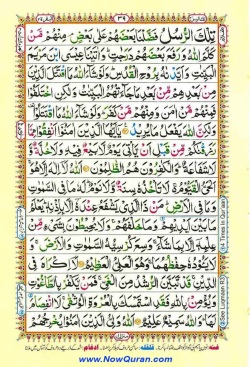 ٣٩
تِلْكَ الرُّسُلُ فَضَّلْنَا بَعْضَهُمْ عَلٰی بَعْضٍ مِنْهُمْ مَّنْ
كَلَّمَ اللّٰهُ وَرَفَعَ بَعْضَهُمْ دَرَجٰتٍ وَاٰتَیْنَا عِیْسَی ابْنَ مَرْیَمَ
الْبَیِّنٰتِ وَاَیَّدْنٰهُ بِرُوْحِ الْقُدُسِ وَلَوْ شَآءَ اللّٰهُ مَا اقْتَتَلَ الَّذِیْنَ
مِنْ بَعْدِهِمْ مِّنْ بَعْدِ مَا جَآءَتْهُمُ الْبَیِّنٰتُ وَلٰكِنِ اخْتَلَفُوْا
فَمِنْهُمْ مَّنْ اٰمَنَ وَمِنْهُمْ مَّنْ كَفَرَ وَلَوْ شَآءَ اللّٰهُ مَا اقْتَتَلُوْا
وَلٰكِنَّ اللّٰهَ یَفْعَلُ مَا یُرِیْدُ یٰۤاَیُّهَا الَّذِیْنَ اٰمَنُوْۤا اَنْفِقُوْا مِمَّا
رَزَقْنٰكُمْ مِّنْ قَبْلِ اَنْ یَّاْتِیَ یَوْمٌ لَّا بَیْعٌ فِیْهِ وَلَا خُلَّةٌ
وَّلَا شَفَاعَةٌ وَالْكٰفِرُوْنَ هُمُ الظّٰلِمُوْنَ اَللّٰهُ لَاۤ اِلٰهَ اِلَّا هُوَ
اَلْحَیُّ الْقَیُّوْمُ لَا تَاْخُذُهٗ سِنَةٌ وَّلَا نَوْمٌ لَهٗ مَا فِی السَّمٰوٰتِ
وَمَا فِی الْاَرْضِ مَنْ ذَا الَّذِیْ یَشْفَعُ عِنْدَهٗۤ اِلَّا بِاِذْنِهٖ یَعْلَمُ
مَا بَیْنَ اَیْدِیْهِمْ وَمَا خَلْفَهُمْ وَلَا یُحِیْطُوْنَ بِشَیْءٍ مِّنْ
عِلْمِهٖۤ اِلَّا بِمَا شَآءَ وَسِعَ كُرْسِیُّهُ السَّمٰوٰتِ وَالْاَرْضَ
وَلَا یَـُٔوْدُهٗ حِفْظُهُمَا وَهُوَ الْعَلِیُّ الْعَظِیْمُ لَاۤ اِكْرَاهَ فِی
الدِّیْنِ قَدْ تَّبَیَّنَ الرُّشْدُ مِنَ الْغَیِّ فَمَنْ یَّكْفُرْ بِالطَّاغُوْتِ
وَیُؤْمِنْ بِاللّٰهِ فَقَدِ اسْتَمْسَكَ بِالْعُرْوَةِ الْوُثْقٰی لَا انْفِصَامَ
لَهَا وَاللّٰهُ سَمِیْعٌ عَلِیْمٌ اَللّٰهُ وَلِیُّ الَّذِیْنَ اٰمَنُوْا یُخْرِجُهُمْ
www.NowQuran.com